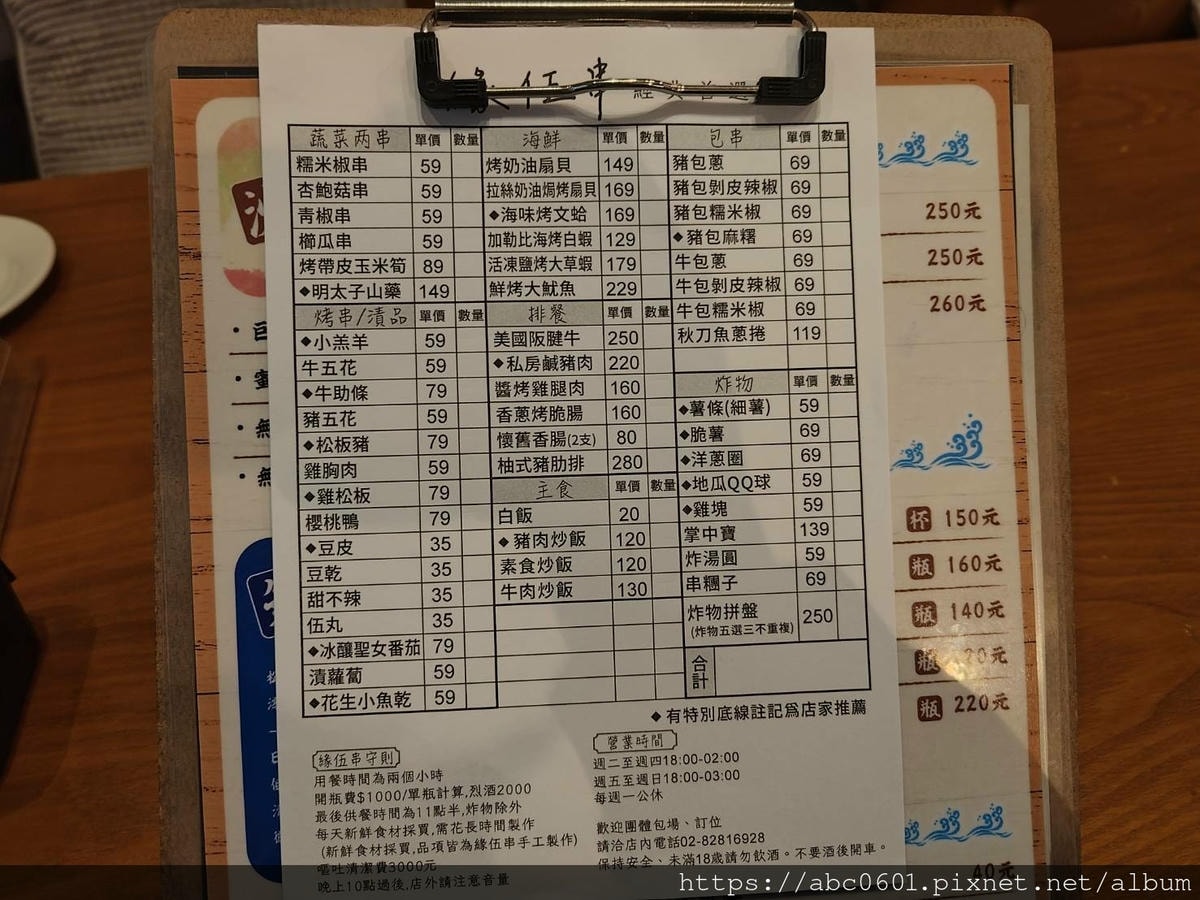 緣伍串 經典首選
蔬菜两串 單價 數量
糯米椒串 59
杏鮑菇串 59
青椒串 59
櫛瓜串 59
烤帶皮玉米筍 89
◆明太子山藥 149
烤串/漬品 單價 數量
◆小羔羊 59
牛五花 59
◆牛助條 79
豬五花 59
◆松板豬 79
雞胸肉 59
◆雞松板 79
櫻桃鴨 79
◆豆皮 35
豆乾 35
甜不辣 35
伍丸 35
◆冰釀聖女番茄 79
漬蘿蔔 59
◆花生小魚乾 59
海鮮 單價 數量
烤奶油扇貝 149
拉絲奶油焗烤扇貝 169
◆海味烤文蛤 169
加勒比海烤白蝦 129
活凍鹽烤大草蝦 179
鮮烤大魷魚 229
排餐 單價 數量
美國阪腱牛 250
◆私房鹹豬肉 220
醬烤雞腿肉 160
香蔥烤脆腸 160
懷舊香腸(2支) 80
柚式豬肋排 280
主食 單價 數量
白飯 20
◆豬肉炒飯 120
素食炒飯 120
牛肉炒飯 130
包串 單價 數量
豬包蔥 69
豬包剝皮辣椒 69
豬包糯米椒 69
◆豬包麻糬 69
牛包蔥 69
牛包剝皮辣椒 69
牛包糯米椒 69
秋刀魚蔥捲 119
炸物 單價 數量
◆薯條(細薯) 59
◆脆薯 69
◆洋蔥圈 69
◆地瓜QQ球 59
◆雞塊 59
掌中寶 139
炸湯圓 59
串糰子 69
炸物拼盤 250
(炸物五選三不重複)
合計
◆有特別底線註記爲店家推薦
緣伍串守則
用餐時間為兩個小時
開瓶費$1000/單瓶計算,烈酒2000
最後供餐時間為11點半,炸物除外
每天新鮮食材採買,需花長時間製作
(新鮮食材採買,品項皆為緣伍串手工製作)
嘔吐清潔費3000元
晚上10點過後,店外請注意音量
營業時間
週二至週四18:00-02:00
週五至週日18:00-03:00
每週一公休
歡迎團體包場、訂位
請洽店內電話02-82816928
保持安全、未滿18歲請勿飲酒。不要酒後開車。
250元
250元
260元
杯 150元
瓶 160元
瓶 140元
瓶
瓶 220元
40元
https://abc0601.pixnet.net/album